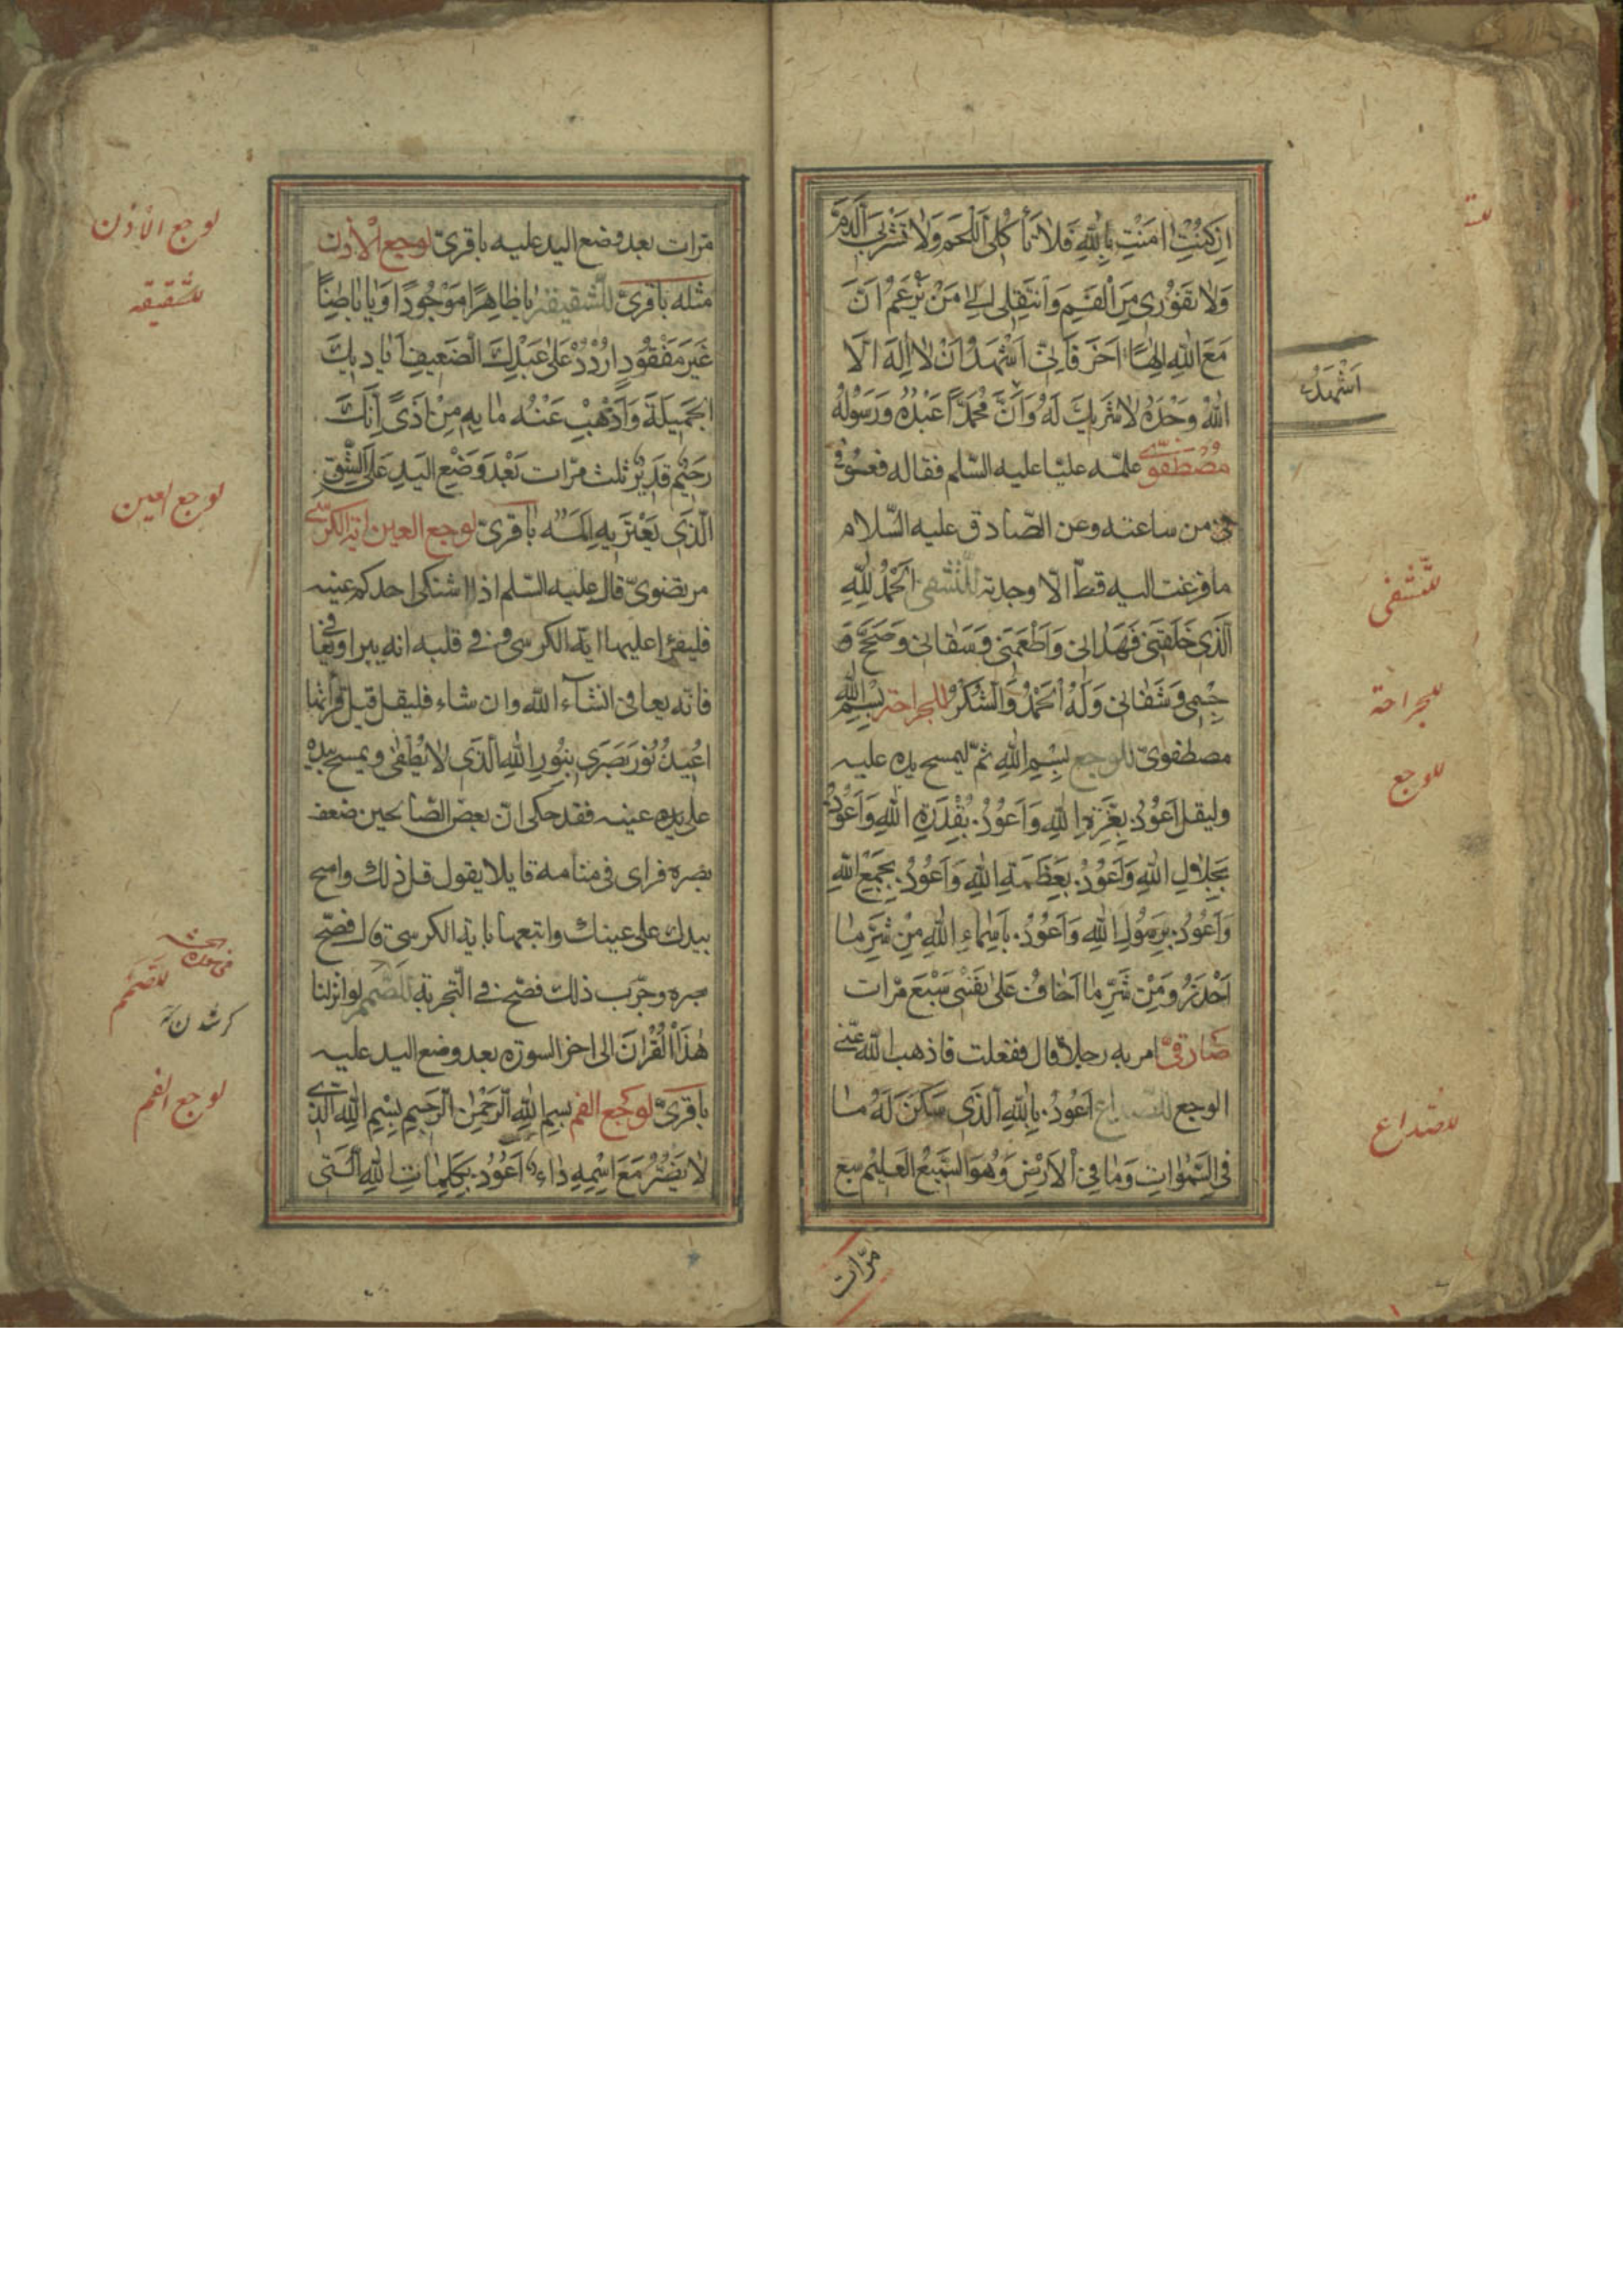 اِنْ كُنْتِ اٰمَنْتِ بِاللّٰهِ فَلَا تَأْكُلِى اللَّحْمَ وَلَا تَشْرَبِى الدَّمَ
وَلَا تَفُوْرِى مِنَ الْفَمِ وَانْتَقِلِى اِلىٰ مَنْ يَزْعَمُ اَنَّ
مَعَ اللّٰهِ اِلٰهًا اٰخَرَ فَاِنِّى اَشْهَدُ اَنْ لَا اِلٰهَ اِلَّا
اللّٰهُ وَحْدَهُ لَا شَرِيكَ لَهُ وَاَنَّ مُحَمَّدًا عَبْدُهُ وَرَسُولُهُ
مصطفوىّ علمّه عليّا عليه السّلم فقاله فعوفى
من ساعته وعن الصّادق عليه السّلام
ما فزعت اليه قطّ الّا وجدته للتشفى اَلْحَمْدُ لِلّٰهِ
الَّذِى خَلَقَنِى فَهَدَانِى وَاَطْعَمَنِى وَسَقَانِى وَصَحَّحَ
جِسْمِى وَشَفَانِى وَلَهُ الْحَمْدُ وَالشُّكْرُ للجراحة بِسْمِ اللّٰهِ
مصطفوىّ للوجع بِسْمِ اللّٰهِ ثمّ ليمسح يده عليه
وليقل اَعُوْذُ بِعِزَّةِ اللّٰهِ وَاَعُوْذُ بِقُدْرَةِ اللّٰهِ وَاَعُوْذُ
بِجَلَالِ اللّٰهِ وَاَعُوْذُ بِعَظَمَةِ اللّٰهِ وَاَعُوْذُ بِجَمْعِ اللّٰهِ
وَاَعُوْذُ بِرَسُولِ اللّٰهِ وَاَعُوْذُ بِاَسْمَاءِ اللّٰهِ مِنْ شَرِّ مَا
اَحْذَرُ وَمِنْ شَرِّ مَا اَخَافُ عَلىٰ نَفْسِى سَبْعَ مرّات
صادقىّ امر به رجلاً قال ففعلت فاذهب اللّٰه عنّى
الوجع للصداع اَعُوْذُ بِاللّٰهِ الَّذِى سَكَنَ لَهُ مَا
فِى السَّمٰوَاتِ وَمَا فِى الْاَرْضِ وَهُوَ السَّمِيعُ الْعَلِيمُ سبع
مرّات
اَشْهَدُ
للتشفى
للجراحة
للوجع
للصداع
مرّات بعد وضع اليد عليه باقرىّ لوجع الاذن
مثله باقرىّ للشقيقة يَا ظَاهِرًا مَوْجُودًا وَيَا بَاطِنًا
غَيْرَ مَفْقُودٍ اُرْدُدْ عَلىٰ عَبْدِكَ الضَّعِيفِ اَيَادِيكَ
الْجَمِيلَةَ وَاَذْهِبْ عَنْهُ مَا بِهِ مِنْ اَذًى اِنَّكَ
رَحِيْمٌ قَدِيْرٌ ثلث مرّات بَعْدَ وَضْعِ الْيَدِ عَلَى الشِّقِّ
الَّذِى يَعْتَرِيهِ اَلَمُهُ باقرىّ لوجع العين اية الكرسى
مرتضوىّ قال عليه السّلم اذا اشتكى احدكم عينه
فليقرء عليها اية الكرسى وفى قلبه انه يبرا ويعافى
فانّه يعافى انشآء اللّٰه وان شاء فليقل قبل قرائتها
اُعِيذُ نُوْرَ بَصَرِى بِنُورِ اللّٰهِ الَّذِى لَا يُطْفَى ويمسح بيده
على عينه فقد حكى انّ بعض الصّالحين ضعف
بصره فراى فى منامه قايلا يقول قل ذلك وامسح
بيدك على عينيك واتبعها باية الكرسى قال فصحّ
بصره وجرّب ذلك فصحّ فى التّجربة للصّمم لو انزلنا
هٰذَا الْقُرْاٰنَ الى اخر السورة بعد وضع اليد عليه
باقرىّ لوجع الفم بِسْمِ اللّٰهِ الرَّحْمٰنِ الرَّحِيمِ بِسْمِ اللّٰهِ الَّذِى
لَا يَضُرُّ مَعَ اسْمِهِ دَاءٌ اَعُوْذُ بِكَلِمَاتِ اللّٰهِ الَّتِى
لوجع الاذن
للشقيقه
لوجع العين
للصمم
لوجع الفم